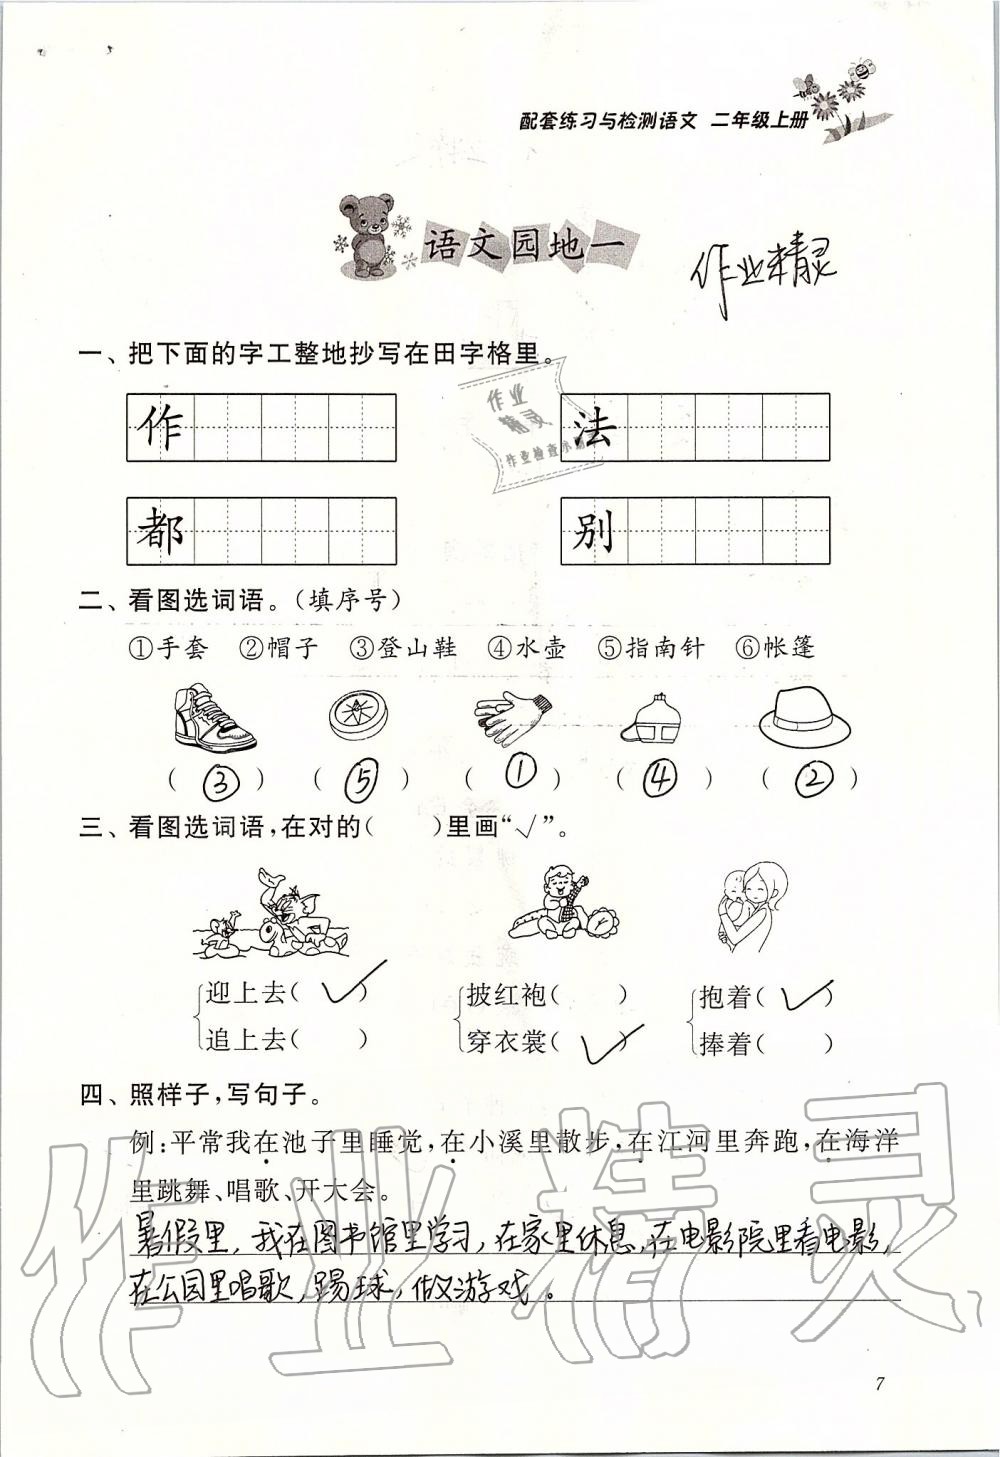 配套练习与检测语文 二年级上册
语文园地一
作业精灵
一、把下面的字工整地抄写在田字格里。
作 法
作业
精灵
作业检查小
都 别
二、看图选词语。(填序号)
①手套 ②帽子 ③登山鞋 ④水壶 ⑤指南针 ⑥帐篷
(③) (⑤) (①) (④) (②)
三、看图选词语,在对的( )里画“√”。
迎上去(√) 披红袍( ) 抱着(√)
追上去( ) 穿衣裳(√) 捧着( )
四、照样子,写句子。
例:平常我在池子里睡觉,在小溪里散步,在江河里奔跑,在海洋
里跳舞、唱歌、开大会。
暑假里,我在图书馆里学习,在家里休息,在电影院里看电影,
在公园里唱歌,踢球,做游戏。
作业精灵
7